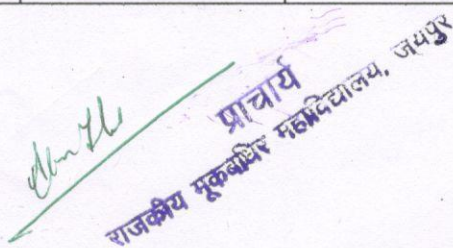 प्राचार्य
राजकीय मूकबधिर महाविद्यालय, जयपुर